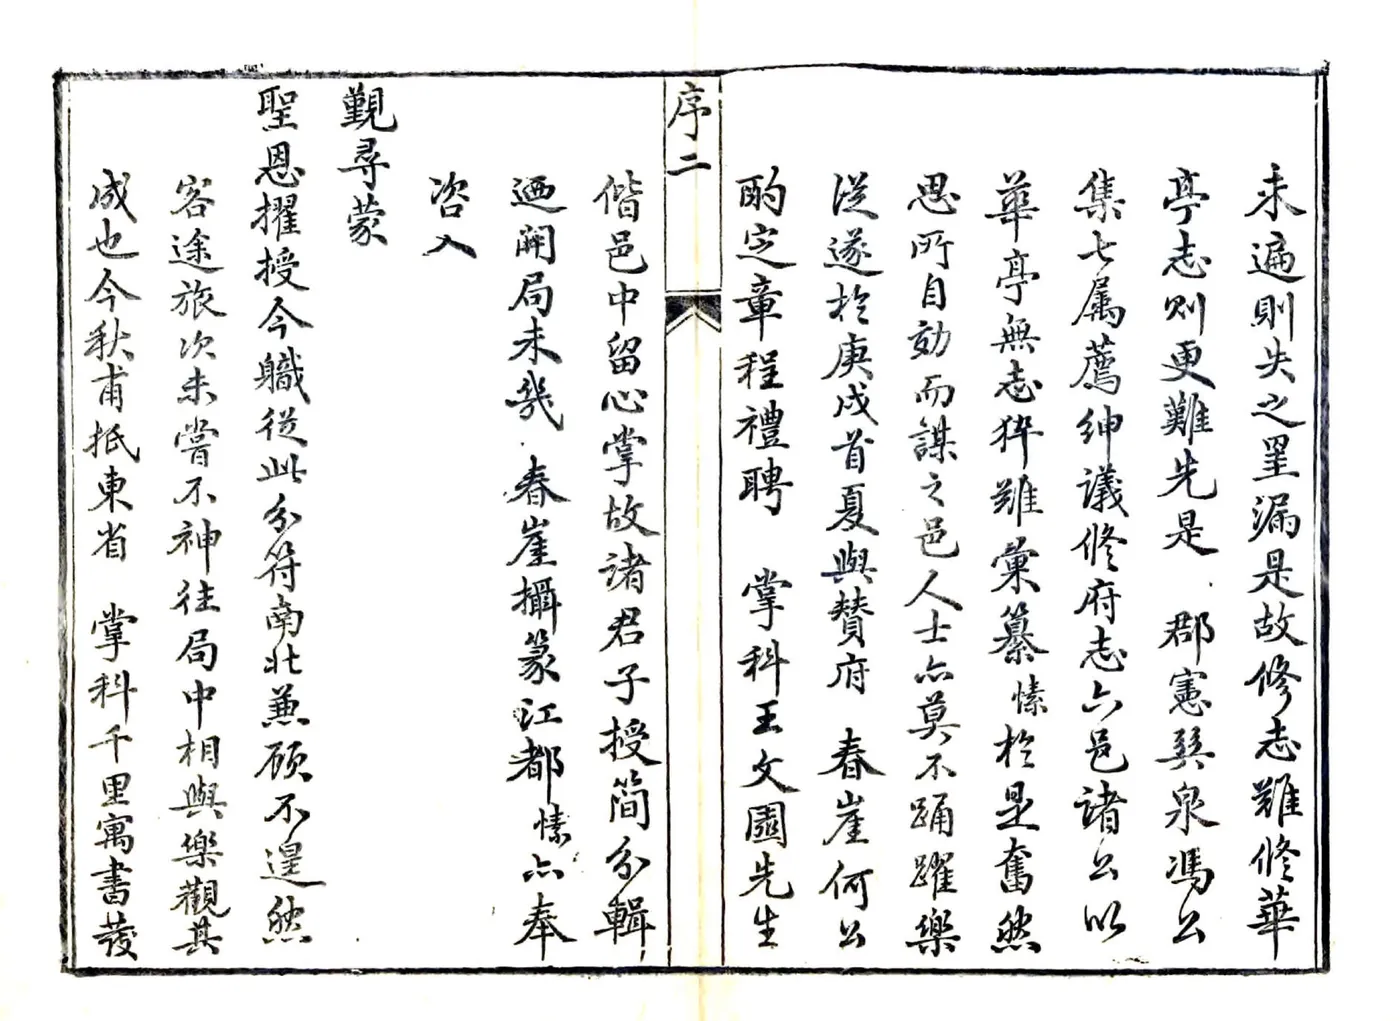 未遍則失之罣漏是故修志難修華
亭志則更難先是郡憲巽泉馮公
集七属薦紳議修府志六邑諸公以
華亭無志猝難彙纂愫於是奮然
思所自効而謀之邑人士亦莫不踊躍樂
從遂於庚戌首夏與贊府春崖何公
酌定章程禮聘掌科王文園先生
序二
偕邑中留心掌故諸君子授簡分輯
迺開局未幾春崖攝篆江都愫亦奉
咨入
覲尋蒙
聖恩擢授今職從此分符南北兼顧不遑然
客途旅次未嘗不神往局中相與樂觀其
成也今秋甫抵東省掌科千里寓書蕟